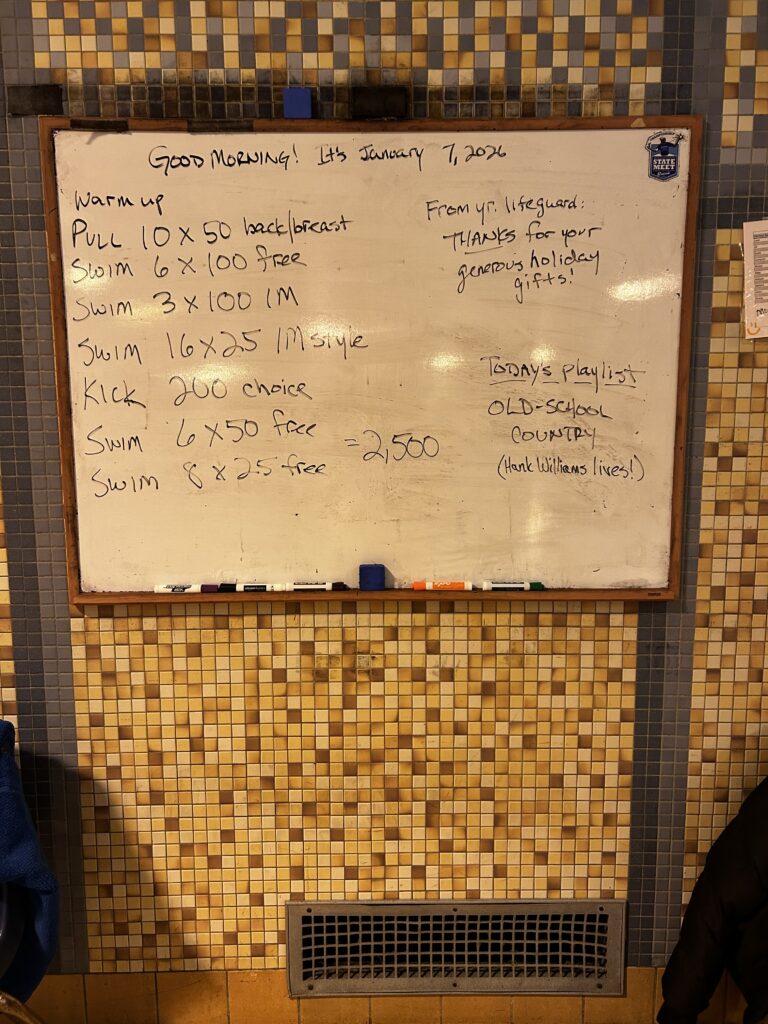 GOOD MORNING! It's January 7, 2026
Warm up
PULL 10 x 50 back/breast
Swim 6 x 100 free
Swim 3 x 100 IM
Swim 16 x 25 IM style
Kick 200 choice
Swim 6 x 50 free
Swim 8 x 25 free
= 2,500
From yr. lifeguard:
THANKS for your
generous holiday
gifts!
TODAY'S playlist
OLD-SCHOOL
COUNTRY
(Hank Williams lives!)
STATE
MEET